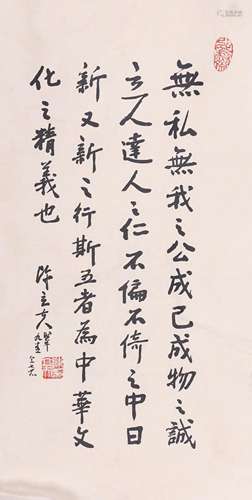 無私無我之公成己成物之誠
立人達人之仁不偏不倚之中日
新又新之行斯五者為中華文
化之精義也
陳立夫 年九五